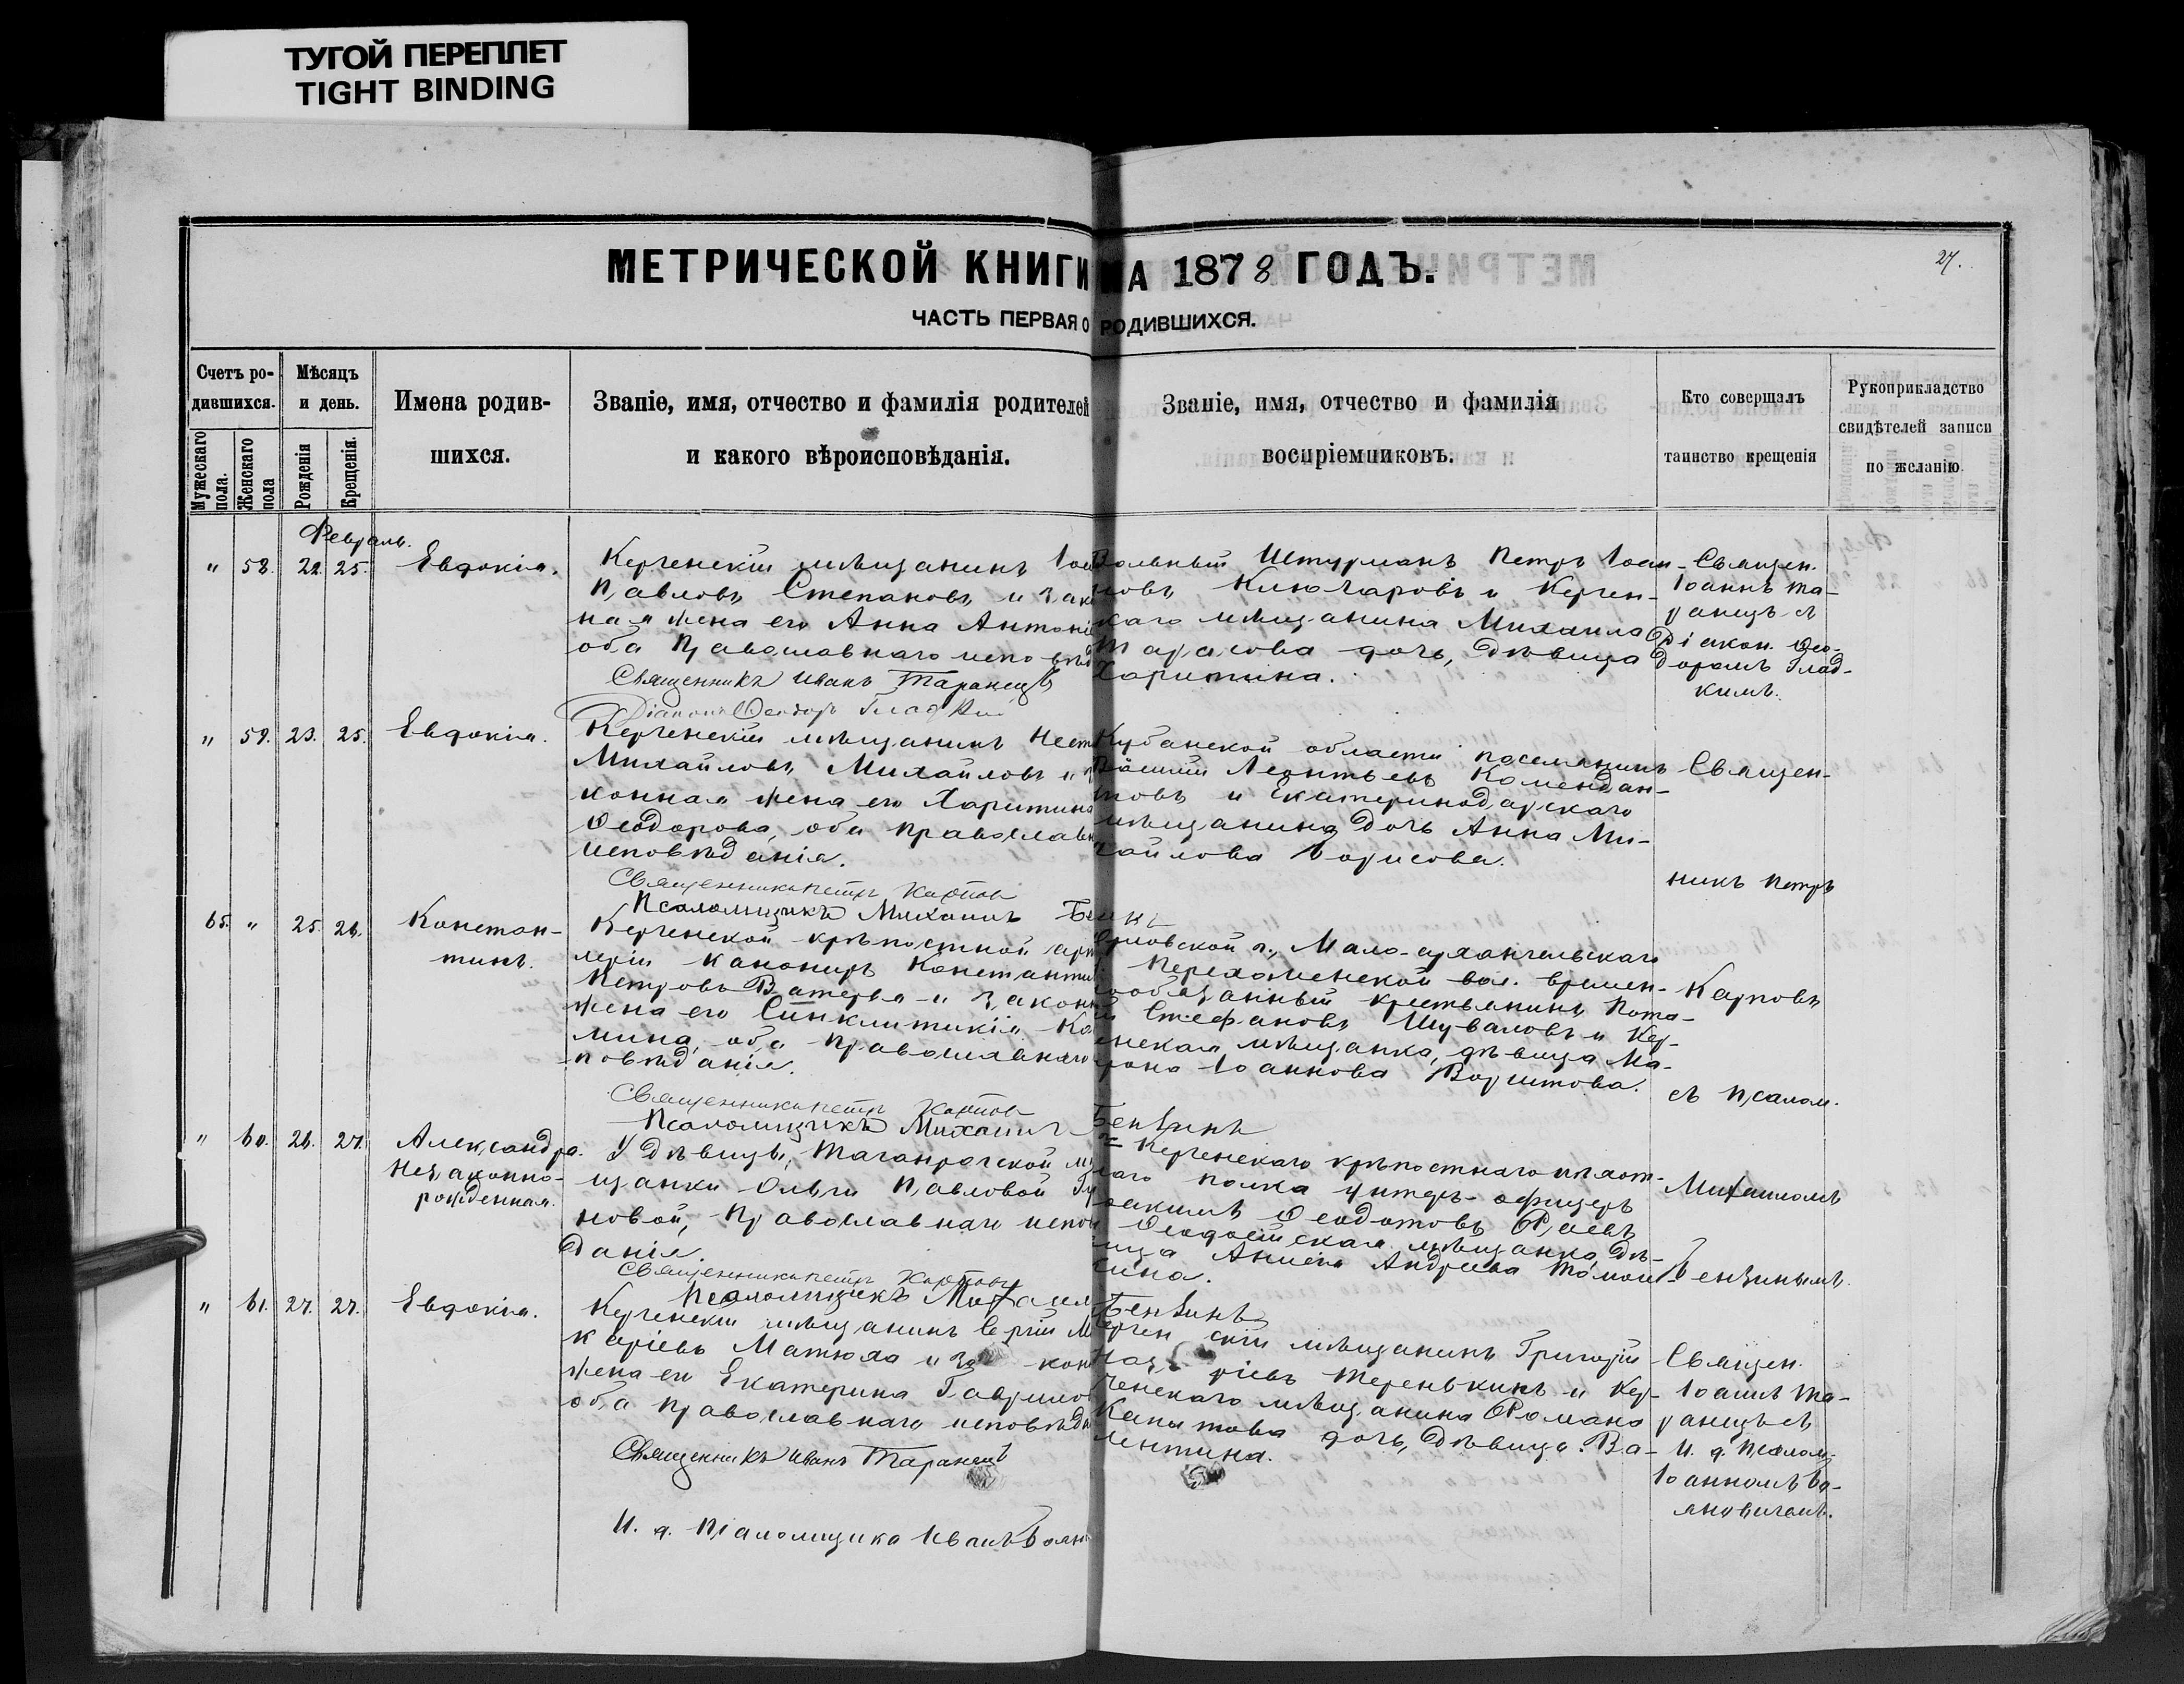 ТУГОЙ ПЕРЕПЛЕТ
TIGHT BINDING
МЕТРИЧЕСКОЙ КНИГИ НА 1878 ГОДЪ.
27.
ЧАСТЬ ПЕРВАЯ О РОДИВШИХСЯ.
Счетъ ро-
дившихся.
Мужескаго пола.
Женскаго пола
Мѣсяцъ
и день.
Рожденія
Крещенія.
Имена родив-
шихся.
Званіе, имя, отчество и фамилія родителей
и какого вѣроисповѣданія.
Званіе, имя, отчество и фамилія
воспріемниковъ.
Кто совершалъ
таинство крещенія
Рукоприкладство
свидѣтелей записи
по желанію
Февраль.
" 58. 22. 25. Евдокія.
Керченскій мѣщанинъ
Павловъ Степановъ и зако
ная жена его Анна Антоні
оба Православнаго исповѣд
Священникъ Иванъ Таранецъ
Діаконъ Ѳеодоръ Гладкій
Вольный Штурманъ Петръ Іоан-
новъ Ключаровъ и Керчен-
каго мѣщанина Михаила
Тарасова дочь, дѣвица
Харитина.
Священ.
Іоаннъ Та-
ранецъ съ
Діакон. Ѳео-
доромъ Глад-
кимъ.
" 59. 23. 25. Евдокія.
Керченскій мѣщанинъ Нест
Михайловъ Михайловъ и
конная жена его Харитина
Ѳеодорова, оба православн
исповѣданія.
Священникъ Петръ Карповъ
Псаломщикъ Михаилъ
Кубанской области поселянинъ
Леонтьевъ Комендан-
товъ и Екатеринодарскаго
мѣщанина дочь Анна Ми-
хайлова Борисова.
Священ-
никъ Петръ
65. " 25. 26. Констан-
тинъ.
Керченской крѣпостной арт
леріи канониръ Константи
Петровъ и законн
жена его Синклитикія Ко
мина, оба православнаго
повѣданія.
Священникъ Петръ Карповъ
Псаломщикъ Михаилъ Бензинъ
Орловской г., Мало-архангельскаго
вол. времен-
нообязанный крестьянинъ Пота-
Стефановъ Шуваловъ и Кер-
енская мѣщанка, дѣвица Ма-
рона Іоаннова
Карповъ
съ Псалом.
" 60. 26. 27. Александра.
Незаконно-
рожденная.
У дѣвицы, Таганрогской мѣ
щанки Ольги Павловой
новой, Православнаго испов
данія.
Священникъ Петръ Карповъ
Псаломщикъ Михаилъ Бензинъ
Керченскаго крѣпостнаго пѣхот-
наго полка унтеръ-офицеръ
Ѳеодотовъ
Ѳеодосійская мѣщанка, дѣ-
вица Андреева
Михаиломъ
Бензинымъ.
" 61. 27. 27. Евдокія.
Керченскій мѣщанинъ Сергій М
каріевъ Матюха и за кон
жена его Екатерина Гаврилов
оба православнаго исповѣда
Священникъ Иванъ Таранецъ
И. д. Псаломщика Иванъ
Керчен скій мѣщанинъ Григорій
Наз ріевъ Теренькинъ и Кер-
ченскаго мѣщанина Романа
дочь, дѣвица Ва-
лентина.
Священ.
Іоаннъ Та-
ранецъ съ
И. д. Псалом.
Іоанномъ Бо-
яновичемъ.